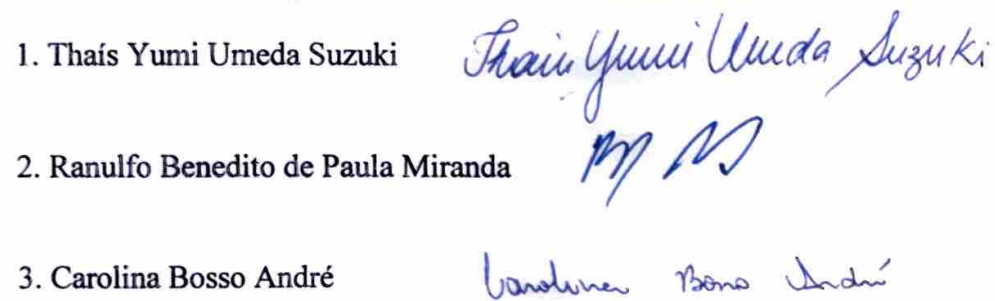 1. Thaís Yumi Umeda Suzuki Thais Yumi Umeda Suzuki
2. Ranulfo Benedito de Paula Miranda
3. Carolina Bosso André Carolina Bosso André